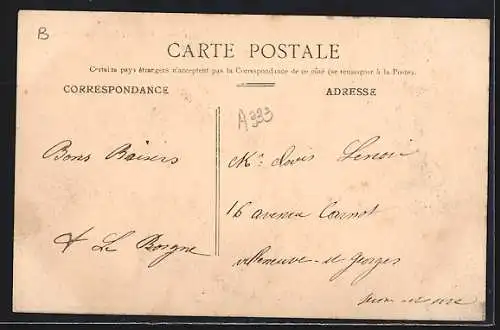 B
CARTE POSTALE
Certains pays étrangers n'acceptent pas la Correspondance de ce côté (se renseigner à la Poste).
CORRESPONDANCE
ADRESSE
A333
Bons Baisers
Mr Louis Lenoir
16 avenue Carnot
A Le Borgne
villeneuve-st Georges